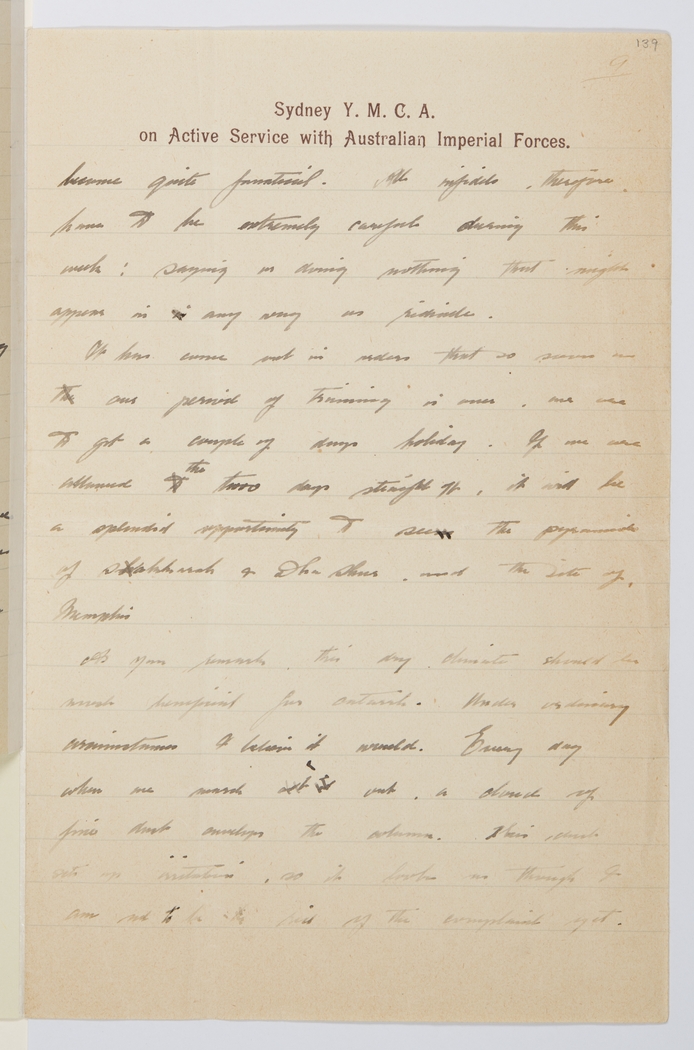 139
9
Sydney Y. M. C. A.
on Active Service with Australian Imperial Forces.
become quite fanatical. All infidels, therefore,
have to be extremely careful during this
week; saying or doing nothing that might
appear in any way as ridicule.
It has come out in orders that so soon as
the our period of training is over, we are
to get a couple of days holiday. If we are
allowed the two days straight off, it will be
a splendid opportunity to see the pyramids
of Sakkarah & Dhashur, and the site of
Memphis
As you remark, this dry climate should be
most beneficial for catarrh. Under ordinary
circumstances I believe it would. Every day
when we march out, a cloud of
fine dust envelops the column. This dust
sets up irritation, so it looks as though I
am not to be rid of the complaint yet.